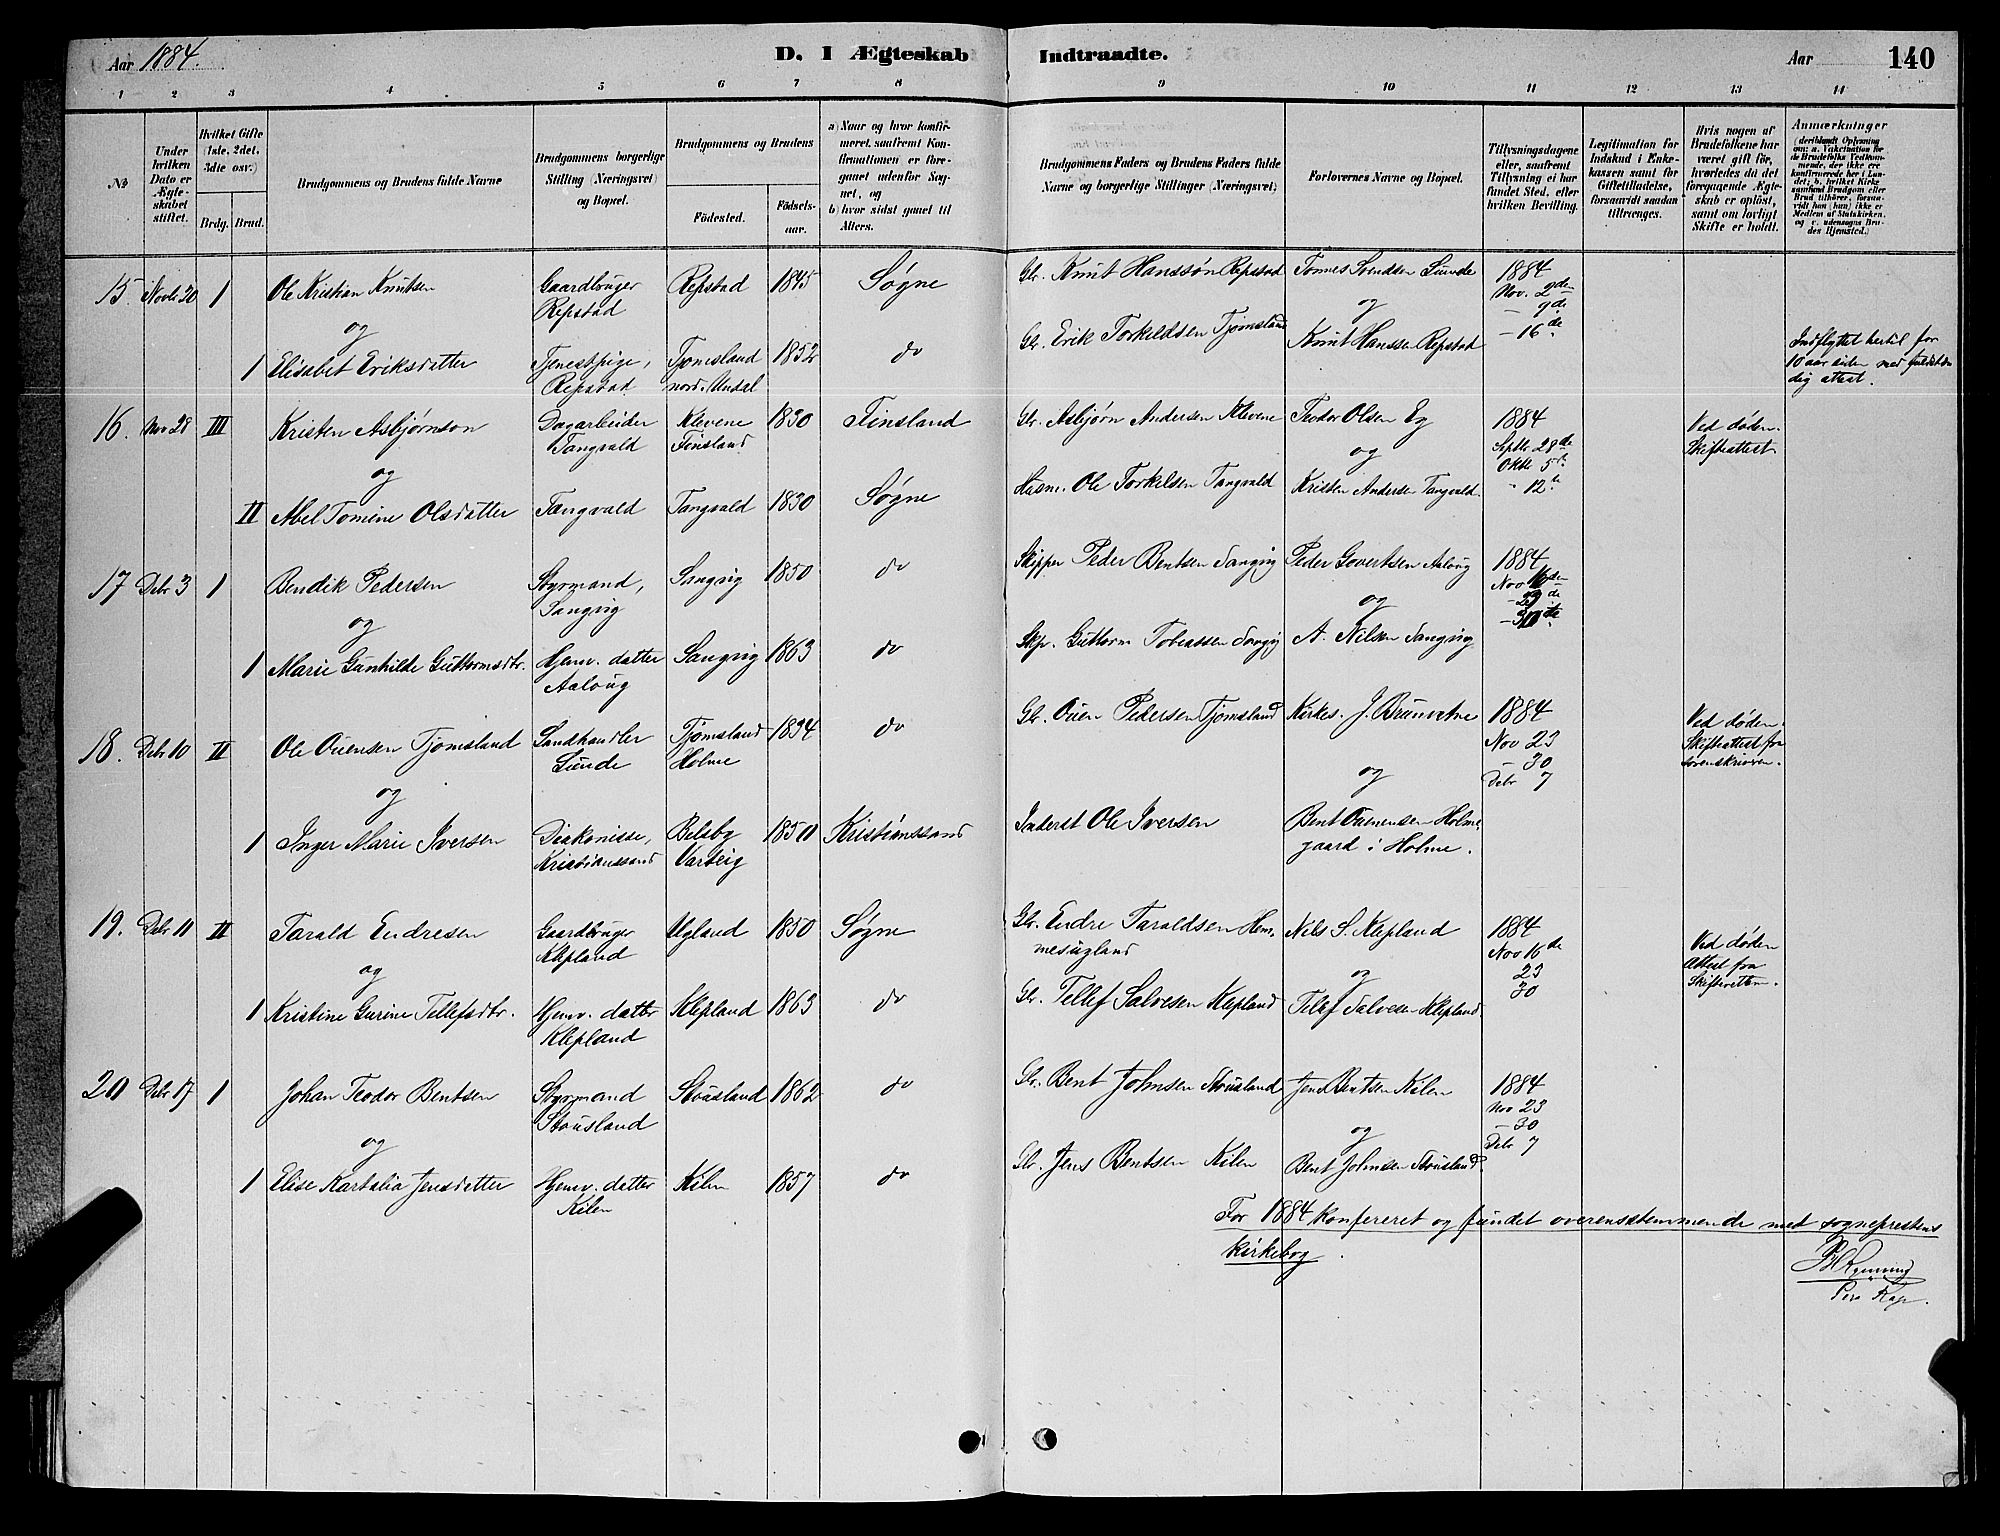 Aar 1884.
D. I Ægteskab Indtraadte.
Aar
140
1 2 3 4 5 6 7 8 9 10 11 12 13 14
№
Under hvilken Dato er Ægteskabet stiftet.
Hvilket Gifte (1ste, 2det, 3dte osv.)
Brdg. Brud.
Brudgommens og Brudens fulde Navne
Brudgommens borgerlige Stilling (Næringsvei) og Bopæl.
Brudgommens og Brudens
Födested.
Födselsaar.
a) Naar og hvor konfirmeret, saafremt Konfirmationen er foregaaet udenfor Sognet, og
b) hvor sidst gaaet til Alters.
Brudgommens Faders og Brudens Faders fulde Navne og borgerlige Stillinger (Næringsvei)
Forlovernes Navne og Bopæl.
Tillysningsdagene eller, saafremt Tillysning ei har fundet Sted, efter hvilken Bevilling.
Legitimation for Indskud i Enkekassen samt for Giftetilladelse, forsaavidt saadan tiltrænges.
Hvis nogen af Brudefolkene har været gift för, hvorledes da det foregaaende Ægteskab er oplöst, samt om lovligt Skifte er holdt.
Anmærkninger
(deriblandt Oplysning om: a. Vakcination for de Brudefolks Vedkommende, der ikke ere konfirmerede her i Landet; b. hvilket Kirkesamfund Brudgom eller Brud tilhörer, forsaavidt han (hun) ikke er Medlem af Statskirken, og c. udensogns Brudes Hjemsted.)
15. Novbr 20 1 Ole Kristian Knutsen Gaardbruger Repstad Repstad 1845 Søgne Gbr. Knut Hanssøn Repstad Tonnes Svendsen Lunde 1884 Nov. 2den
og og – 9de
– 16de
1 Elisabet Eriksdatter Tjenestpige, Repstad Tjomsland nord. Undal 1852 do Gbr. Erik Torkeldsen Tjomsland Knut Hanssen Repstad Indflyttet hertil for 10 aar siden med fuldstændig attest.
16. Nov 28 III Kristen Asbjørnson Dagarbeider Tangvald Klevene Finsland 1830 Finsland Gbr. Asbjørn Andersen Klevene Teodor Olsen Eg 1884 Septbr 28de Oktbr 5te – 12te Ved døden. Skifteattest
og og
II Abel Tomine Olsdatter Tangvald Tangvald 1830 Søgne Husm. Ole Torkelsen Tangvald Kristen Andersen Tangvald.
17 Debr 3 1 Bendik Pedersen Styrmand, Langvig Langvig 1850 do Skipper Peder Bentsen Langvig Peder Govertsen Aaloug 1884 Nov 16den – 23de – 30te
og og
1 Marie Gunhilde Guttormsdtr. Hjemv. datter Aaloug Langvig 1863 do Skp. Guttorm Tobiassen Langvig A. Nilsen Langvig
18. Debr 10 II Ole Ouensen Tjomsland Landhandler Lunde Tjomsland Holme 1834 do Gbr. Ouen Pedersen Tjomsland Kirkes. J. Brunvatne 1884 Nov 23 – 30 Debr 7 Ved døden. Skifteattest fra sorenskriveren.
og og
1 Inger Marie Iversen Diakonisse, Kristianssand Belsby Varteig 1850 Kristianssand Inderst Ole Iversen Bent Ouenensen Holmegaard i Holme.
19. Debr 11 II Tarald Endresen Gaardbruger Klepland Ugland 1850 Søgne Gbr. Endre Taraldsen Hemmesugland Nils S. Klepland 1884 Nov 16de 23 30 Ved døden Attest fra Skifteretten.
og og
1 Kristine Gurine Tellefsdtr. Hjemv. datter Klepland Klepland 1863 do Gbr. Tellef Salvesen Klepland Tellef Salvesen Klepland
20 Debr 17 1 Johan Teodor Bentsen Styrmand Stousland Stousland 1862 do Gbr. Bent Johnsen Stousland Jens Bentsen Kilen 1884 Nov 23 – 30 Debr 7
og og
1 Elise Kartalia Jensdatter Hjemv. datter Kilen Kilen 1857 do Gbr. Jens Bentsen Kilen Bent Johnsen Stousland
For 1884 konfereret og fundet overensstemmende med sogneprestens
kirkebog.